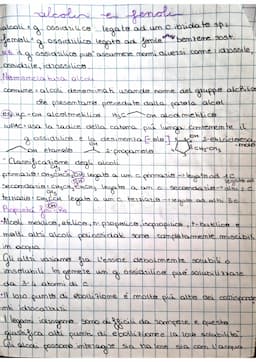 alcoli e fenoli
alcoli: g. ossidrilico legato ad un C ibridato sp3
fenoli: g. ossidrilico legato ad benzene sost.
NB: il g. ossidrilico può assumere nomi diversi come idrossile,
ossidrile, idrossilico
Nomenclatura alcol
comune: alcoli denominati usando nome del gruppo alchilico
che presentano preceduto dalla parola alcol
es) H3C-OH alcol metilico OH alcol etilico
IUPAC: usa la radice della catena più lunga contenente il
g. ossidrilico e la desinenza [-olo]
OH etanolo 2-propanolo
- Classificazione degli alcoli
primario: legato a un C primario → legato ad 1 C
secondario: legato a un C secondario → altri 2 C
terziario: legato a un C terziario → legato ad altri 3 C
Proprietà fisiche
Alcoli metilico, etilico, n-propilico, isopropilico, t-butilico e
molti altri alcoli polinossidrilati sono completamente miscibili
in acqua
Gli altri variano fra l'essere debolmente solubili o
insolubili. In genere un g. ossidrilico può solubilizzare
da 3-4 atomi di C
Il loro punto di ebollizione è molto più alto dei corrispondenti
idrocarburi
I legami idrogeno sono difficili da rompere e questo
giustifica alti punti di ebollizione e la loro solubilità
Gli alcoli possono interagire sia tra loro sia con l'acqua